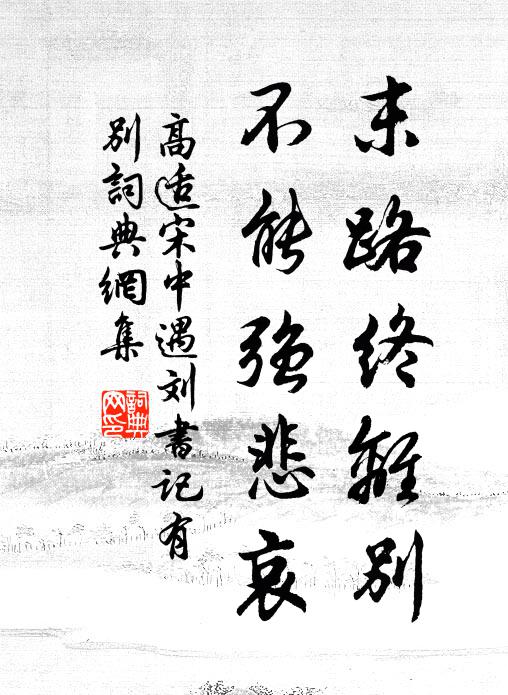 末路终離别
不能强悲哀
高适宋中遇刘書記有
别詞典網集
詞典网印